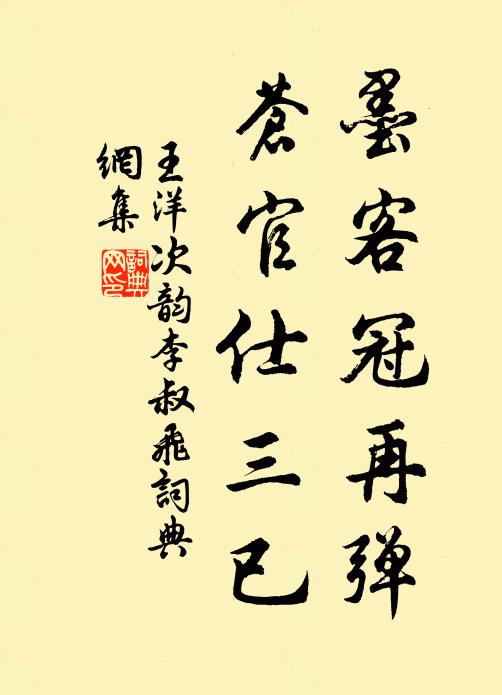 墨客冠再弹
苍官仕三已
王洋次韵李叔飛詞典
網集
詞典
网印